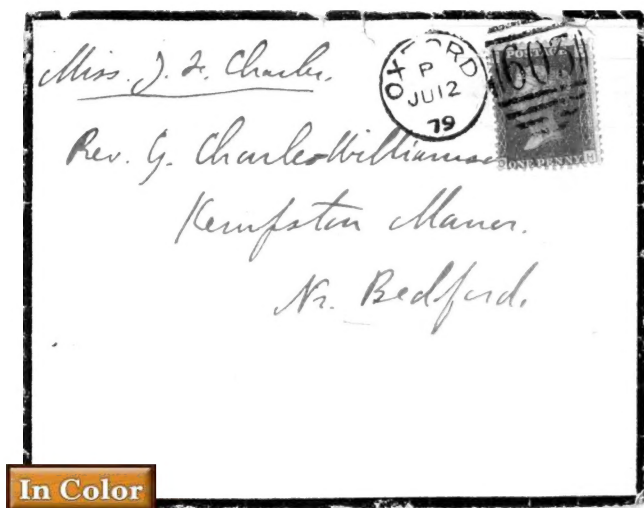 Miss. J. F. Charles.
OXFORD
P
JU12
79
603
POSTAGE
ONE PENNY
H
Rev. G. Charles Williamson
Kempston Manor.
Nr. Bedford.
In Color